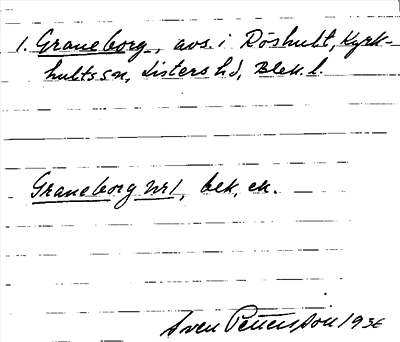 1. Graneborg, avs. i Röshult, Kyrk-
hultssn, Listers hd, Blek. l.
Graneborg Nr 1, bek, ek.
Sven Pettersson 1936